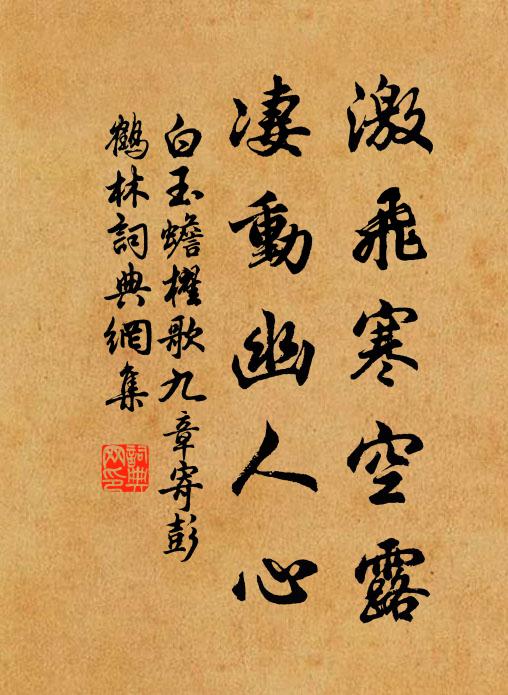 激飛寒空露
凄動幽人心
白玉蟾櫂歌九章寄彭
鶴林詞典網集
詞典網印